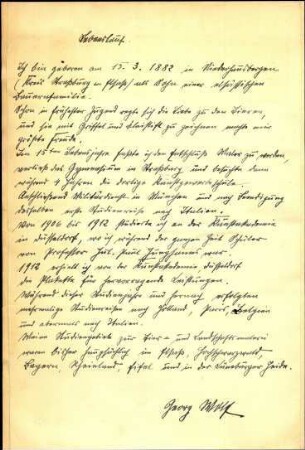 Lebenslauf
Ich bin geboren am 15. 3. 1882 in Niederhausbergen
(Kreis Straßburg in Elsaß) als Sohn einer elsässischen
Bauernfamilie.
Schon in frühester Jugend regte sich die Liebe zu den Tieren,
und sie mit Griffel und Bleistift zu zeichnen machte mir
größte Freude.
Im 15ten Lebensjahre faßte ich den Entschluß Maler zu werden,
verließ das Gymnasium in Straßburg und besuchte dann
während 3 Jahren die dortige Kunstgewerbeschule.
Anschließend Militärdienst in München und nach Beendigung
desselben erste Studienreise nach Italien.
Von 1906 bis 1912 studierte ich an der Kunstakademie
in Düsseldorf, wo ich während der ganzen Zeit Schüler
von Professor Jul. Paul Junghanns war.
1912 erhielt ich von der Kunstakademie Düsseldorf
die Plakette für hervorragende Leistungen.
Während dieser Studienjahre und hernach erfolgten
mehrmalige Studienreisen nach Holland, Paris, Belgien
und abermals nach Italien.
Meine Studiengebiete zur Tier- und Landschaftsmalerei
waren bisher hauptsächlich im Elsaß, Hochschwarzwald,
Bayern, Rheinland, Eifel und in der Lüneburger Heide.
Georg Wolf